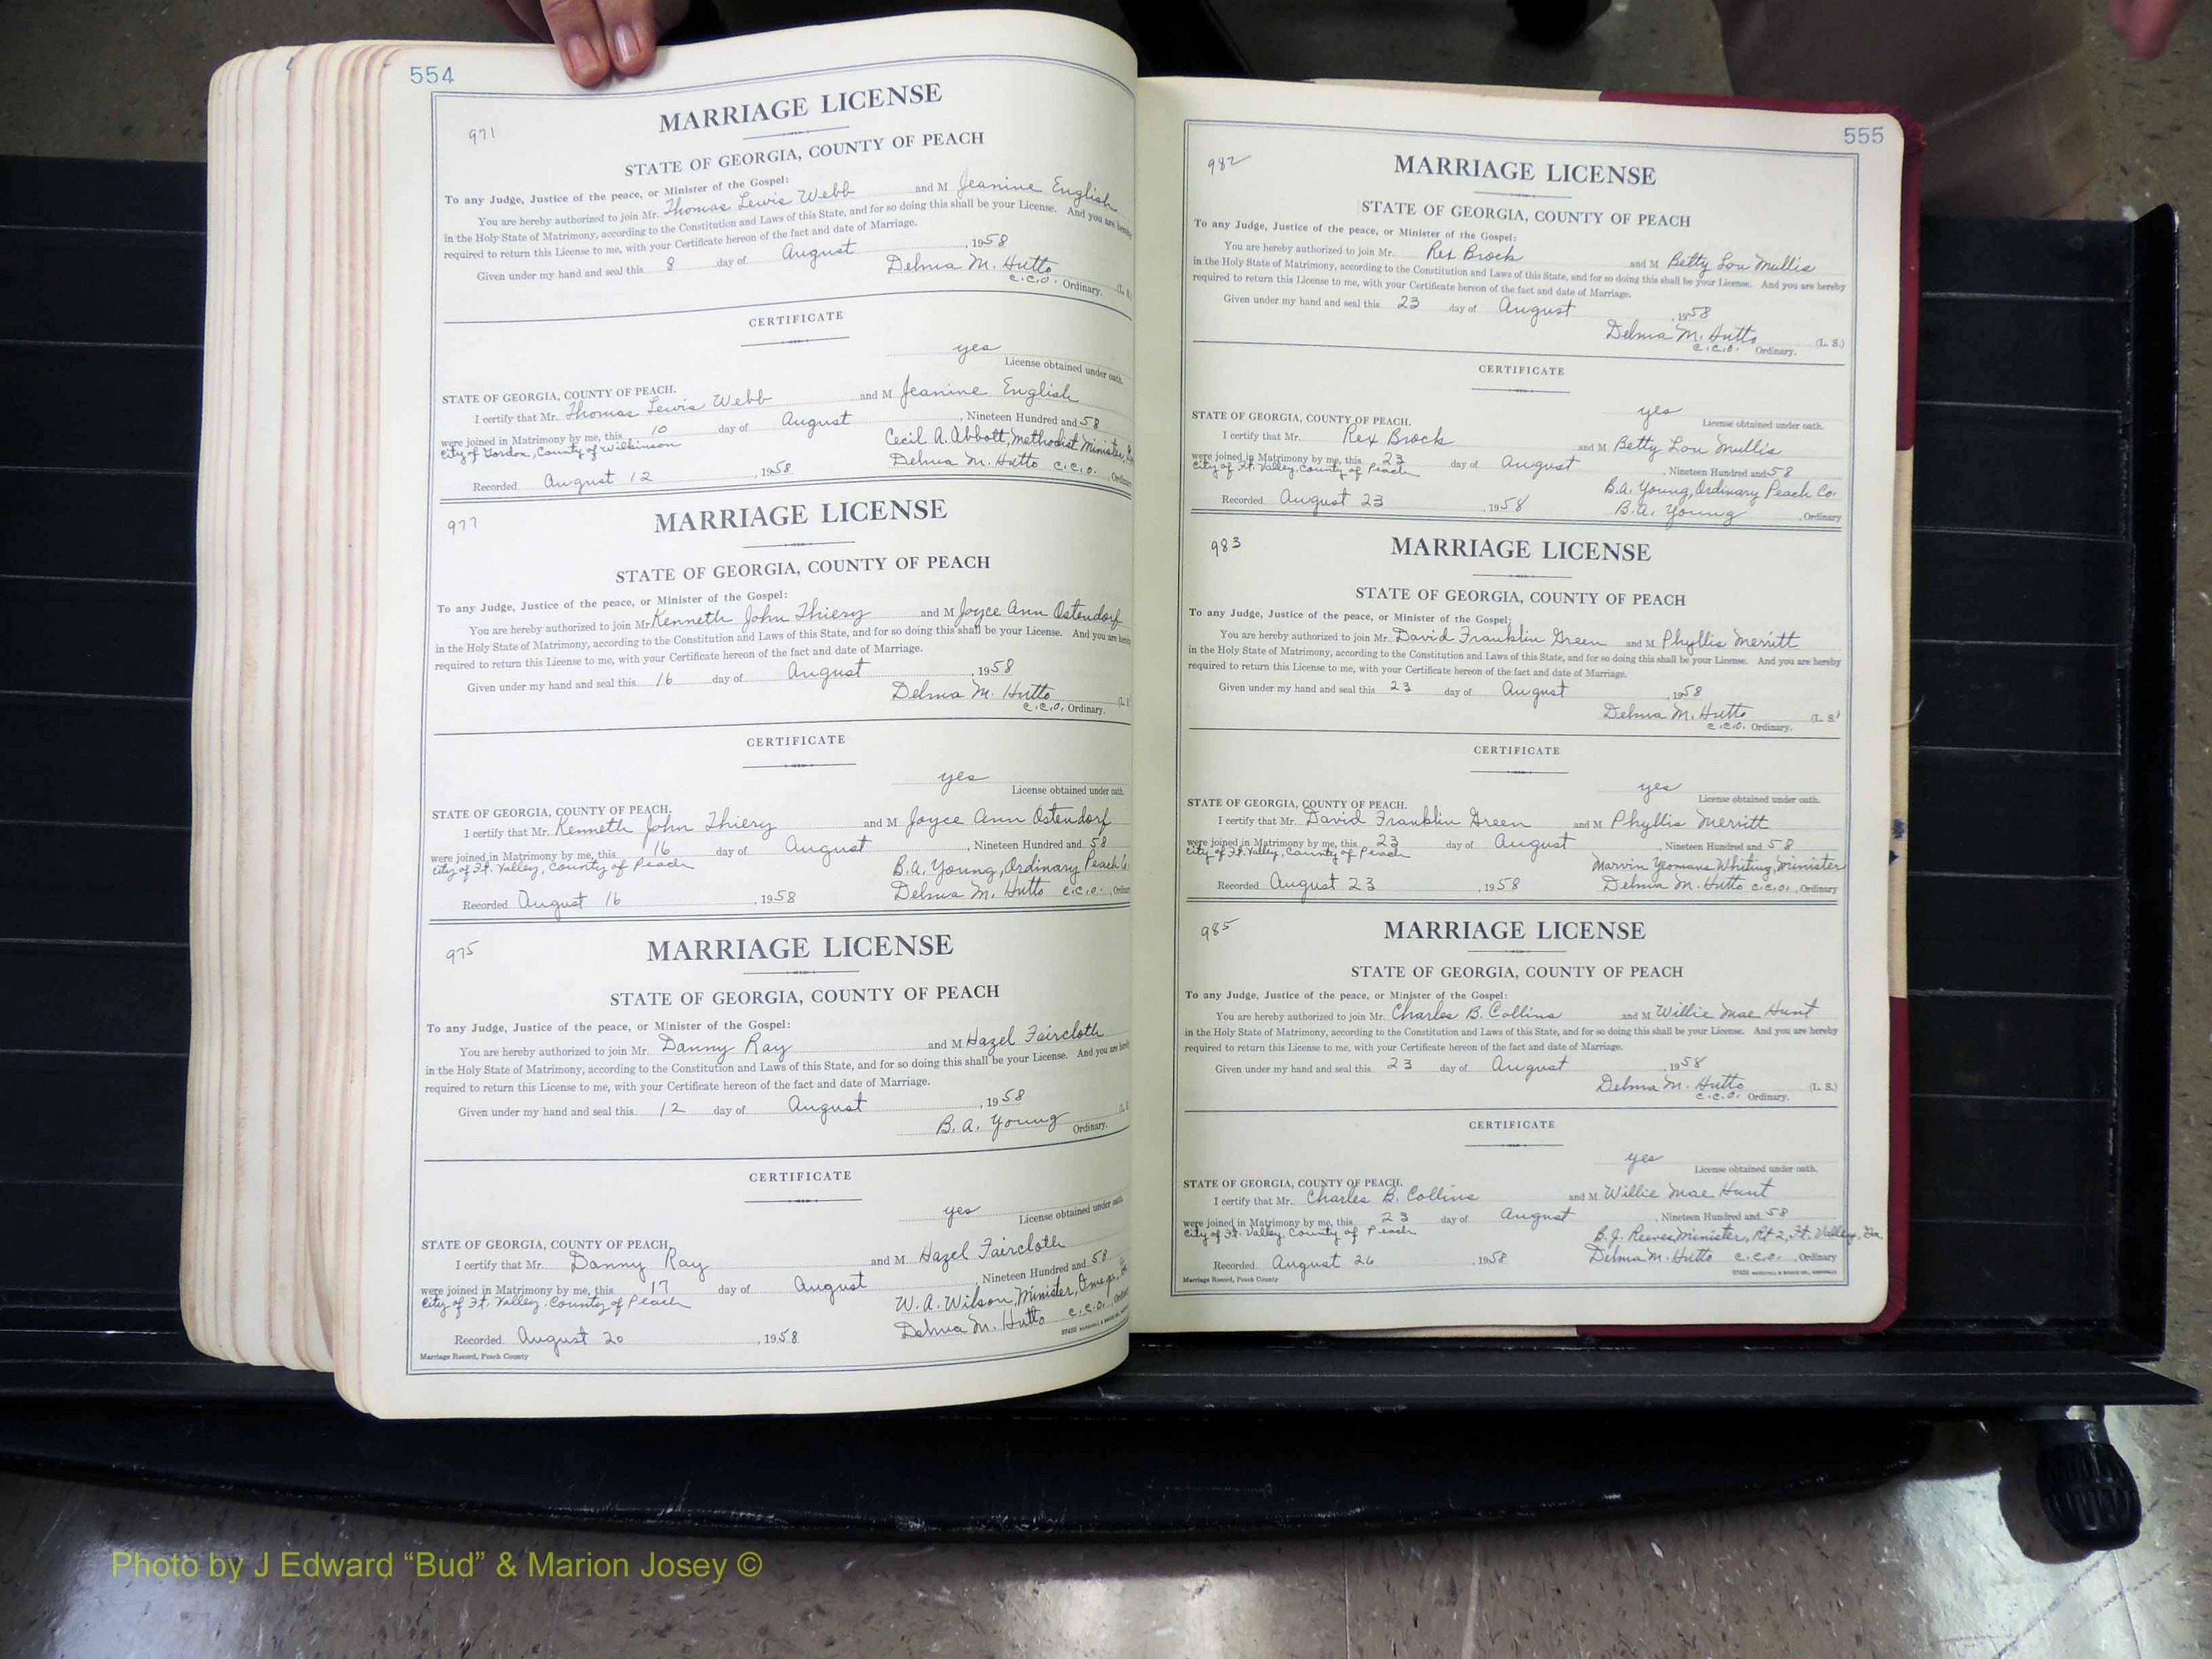 554
971
MARRIAGE LICENSE
STATE OF GEORGIA, COUNTY OF PEACH
To any Judge, Justice of the peace, or Minister of the Gospel:
You are hereby authorized to join Mr. Thomas Lewis Webb and M Jeanine English
in the Holy State of Matrimony, according to the Constitution and Laws of this State, and for so doing this shall be your License. And you are hereby
required to return this License to me, with your Certificate hereon of the fact and date of Marriage.
Given under my hand and seal this 8 day of August, 1958
Delma M. Hutto
c.c.o. Ordinary. (L. S.
CERTIFICATE
yes
License obtained under oath.
STATE OF GEORGIA, COUNTY OF PEACH.
I certify that Mr. Thomas Lewis Webb and M Jeanine English
were joined in Matrimony by me, this 10 day of August, Nineteen Hundred and 58
City of Gordon, County of Wilkinson
Cecil A. Abbott, Methodist Minister,
Recorded August 12, 1958 Delma M. Hutto c.c.o., Ordinary
977
MARRIAGE LICENSE
STATE OF GEORGIA, COUNTY OF PEACH
To any Judge, Justice of the peace, or Minister of the Gospel:
You are hereby authorized to join Mr Kenneth John Thiery and M Joyce Ann Ostendorf
in the Holy State of Matrimony, according to the Constitution and Laws of this State, and for so doing this shall be your License. And you are hereby
required to return this License to me, with your Certificate hereon of the fact and date of Marriage.
Given under my hand and seal this 16 day of August, 1958
Delma M. Hutto
c.c.o. Ordinary. (L. S
CERTIFICATE
yes
License obtained under oath.
STATE OF GEORGIA, COUNTY OF PEACH.
I certify that Mr. Kenneth John Thiery and M Joyce Ann Ostendorf
were joined in Matrimony by me, this 16 day of August, Nineteen Hundred and 58
City of Ft. Valley, County of Peach
B.A. Young, Ordinary Peach Co
Recorded August 16, 1958 Delma M. Hutto c.c.o., Ordinary
975
MARRIAGE LICENSE
STATE OF GEORGIA, COUNTY OF PEACH
To any Judge, Justice of the peace, or Minister of the Gospel:
You are hereby authorized to join Mr. Danny Ray and M Hazel Faircloth
in the Holy State of Matrimony, according to the Constitution and Laws of this State, and for so doing this shall be your License. And you are hereby
required to return this License to me, with your Certificate hereon of the fact and date of Marriage.
Given under my hand and seal this 12 day of August, 1958
B. A. Young Ordinary.
CERTIFICATE
yes
License obtained under oath.
STATE OF GEORGIA, COUNTY OF PEACH.
I certify that Mr. Danny Ray and M Hazel Faircloth
were joined in Matrimony by me, this 17 day of August, Nineteen Hundred and 58
City of Ft. Valley, County of Peach
W. A. Wilson, Minister, Omega,
Recorded August 20, 1958 Delma M. Hutto c.c.o.,
Marriage Record, Peach County
555
982
MARRIAGE LICENSE
STATE OF GEORGIA, COUNTY OF PEACH
To any Judge, Justice of the peace, or Minister of the Gospel:
You are hereby authorized to join Mr. Rex Brock and M Betty Lou Mullis
in the Holy State of Matrimony, according to the Constitution and Laws of this State, and for so doing this shall be your License. And you are hereby
required to return this License to me, with your Certificate hereon of the fact and date of Marriage.
Given under my hand and seal this 23 day of August, 1958
Delma M. Hutto (L. S.)
c.c.o. Ordinary.
CERTIFICATE
yes
License obtained under oath.
STATE OF GEORGIA, COUNTY OF PEACH.
I certify that Mr. Rex Brock and M Betty Lou Mullis
were joined in Matrimony by me, this 23 day of August, Nineteen Hundred and 58
City of Ft. Valley, County of Peach
B.A. Young, Ordinary Peach Co.
Recorded August 23, 1958 B.A. Young, Ordinary
983
MARRIAGE LICENSE
STATE OF GEORGIA, COUNTY OF PEACH
To any Judge, Justice of the peace, or Minister of the Gospel:
You are hereby authorized to join Mr. David Franklin Green and M Phyllis Merritt
in the Holy State of Matrimony, according to the Constitution and Laws of this State, and for so doing this shall be your License. And you are hereby
required to return this License to me, with your Certificate hereon of the fact and date of Marriage.
Given under my hand and seal this 23 day of August, 1958
Delma M. Hutto (L. S.
c.c.o. Ordinary.
CERTIFICATE
yes
License obtained under oath.
STATE OF GEORGIA, COUNTY OF PEACH.
I certify that Mr. David Franklin Green and M Phyllis Merritt
were joined in Matrimony by me, this 23 day of August, Nineteen Hundred and 58
City of Ft. Valley, County of Peach
Marvin Yeomans Whiting, Minister
Recorded August 23, 1958 Delma M. Hutto c.c.o., Ordinary
985
MARRIAGE LICENSE
STATE OF GEORGIA, COUNTY OF PEACH
To any Judge, Justice of the peace, or Minister of the Gospel:
You are hereby authorized to join Mr. Charles B. Collins and M Willie Mae Hunt
in the Holy State of Matrimony, according to the Constitution and Laws of this State, and for so doing this shall be your License. And you are hereby
required to return this License to me, with your Certificate hereon of the fact and date of Marriage.
Given under my hand and seal this 23 day of August, 1958
Delma M. Hutto (L. S.)
c.c.o. Ordinary.
CERTIFICATE
yes
License obtained under oath.
STATE OF GEORGIA, COUNTY OF PEACH.
I certify that Mr. Charles B. Collins and M Willie Mae Hunt
were joined in Matrimony by me, this 23 day of August, Nineteen Hundred and 58
City of Ft. Valley, County of Peach
B.J. Reeves Minister, Rt 2, Ft. Valley, Ga
Recorded August 26, 1958 Delma M. Hutto c.c.o., Ordinary
Marriage Record, Peach County
Photo by J Edward “Bud” & Marion Josey ©